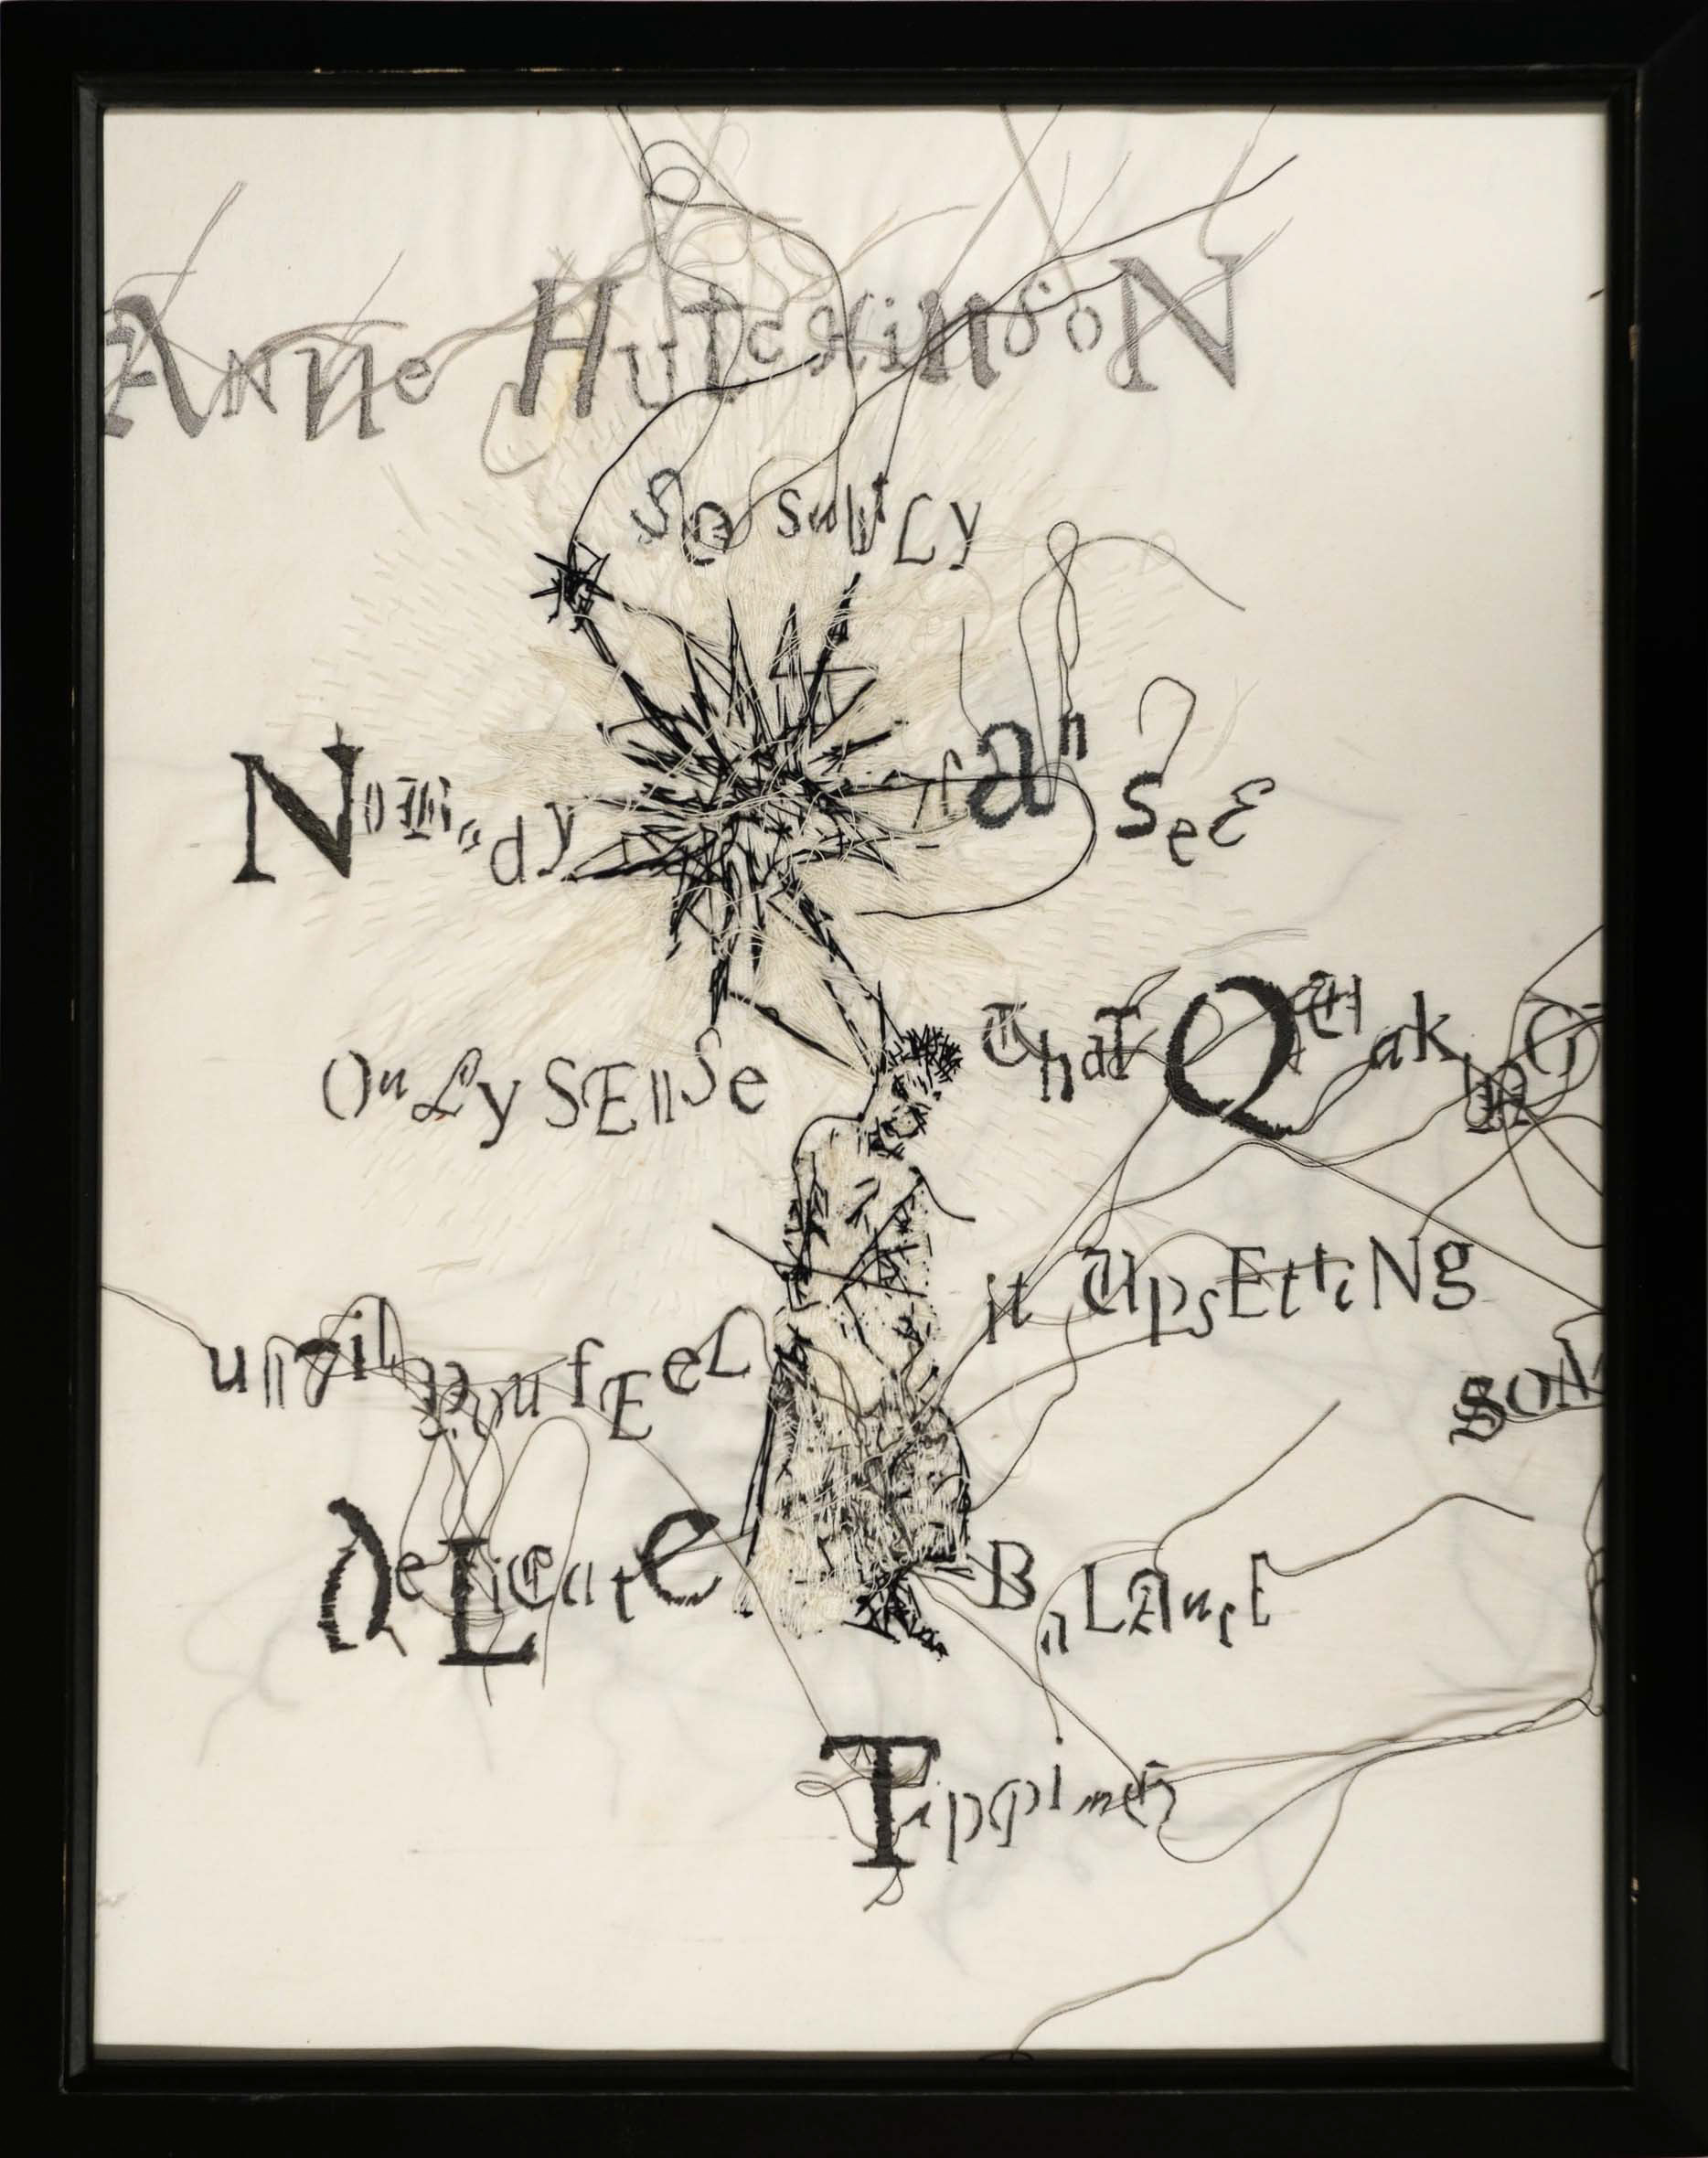 ANne HUTcHiNSoN
So SubtLy
NoBody can SeE
OnLy SEnSe That QUakinG
until you fEeL it UpsEttiNg
DeLiCate BaLAncE
TippinG